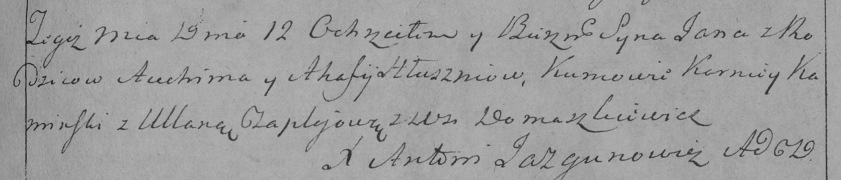 Tegoż Mca Dnia 12 Ochrzciłem y Bierzm Syna Jana z Ro
dzicow Auchima y Ahafij Hłuszniow, Kumowie Karniey Ka
minski z Ullaną Czaplejową z Wsi Domaszkiewicz
X Antoni Jazgunowicz AD